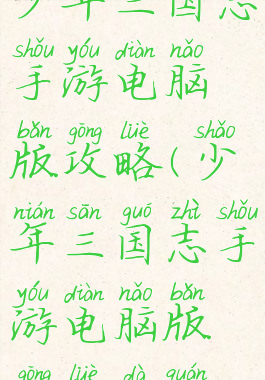 少年三国志
shǒu yóu diàn nǎo
手游电脑
bǎn gōng lüè shǎo
版攻略(少
nián sān guó zhì shǒu
年三国志手
yóu diàn nǎo bǎn
游电脑版
gōng lüè dà quán